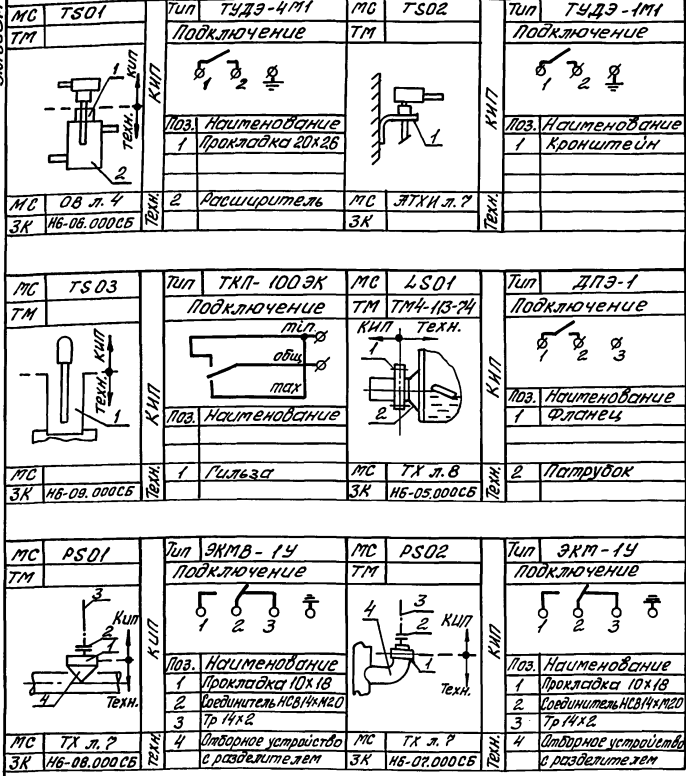 МС TS01
ТМ
КИП
ТЕХН.
1
2
МС ОВ л. 4
ЗК Н6-06.000СБ
КИП
Техн.
Тип ТУДЭ-4М1
Подключение
1 2
Поз. Наименование
1 Прокладка 20х26
2 Расширитель
МС TS02
ТМ
1
МС АТХИ л. 7
ЗК
КИП
Техн.
Тип ТУДЭ-1М1
Подключение
1 2
Поз. Наименование
1 Кронштейн
МС TS03
ТМ
КИП
Техн.
1
МС
ЗК Н6-09.000СБ
КИП
Техн.
Тип ТКП-100ЭК
Подключение
min.
общ
max
Поз. Наименование
1 Гильза
МС LS01
ТМ ТМ4-113-74
КИП Техн.
1
2
МС ТХ л. 8
ЗК Н6-05.000СБ
КИП
Техн.
Тип ДПЭ-1
Подключение
1 2 3
Поз. Наименование
1 Фланец
2 Патрубок
МС PS01
ТМ
3
Кип
2
1
4
Техн.
МС ТХ л. 7
ЗК Н6-08.000СБ
КИП
Техн.
Тип ЭКМВ-1У
Подключение
1 2 3
Поз. Наименование
1 Прокладка 10х18
2 Соединитель НСВ14хМ20
3 Тр 14х2
4 Отборное устройство
с разделителем
МС PS02
ТМ
3
4
КИП
2
1
Техн.
МС ТХ л. 7
ЗК Н6-07.000СБ
КИП
Техн.
Тип ЭКМ-1У
Подключение
1 2 3
Поз. Наименование
1 Прокладка 10х18
2 Соединитель НСВ14хМ20
3 Тр 14х2
4 Отборное устройство
с разделителем